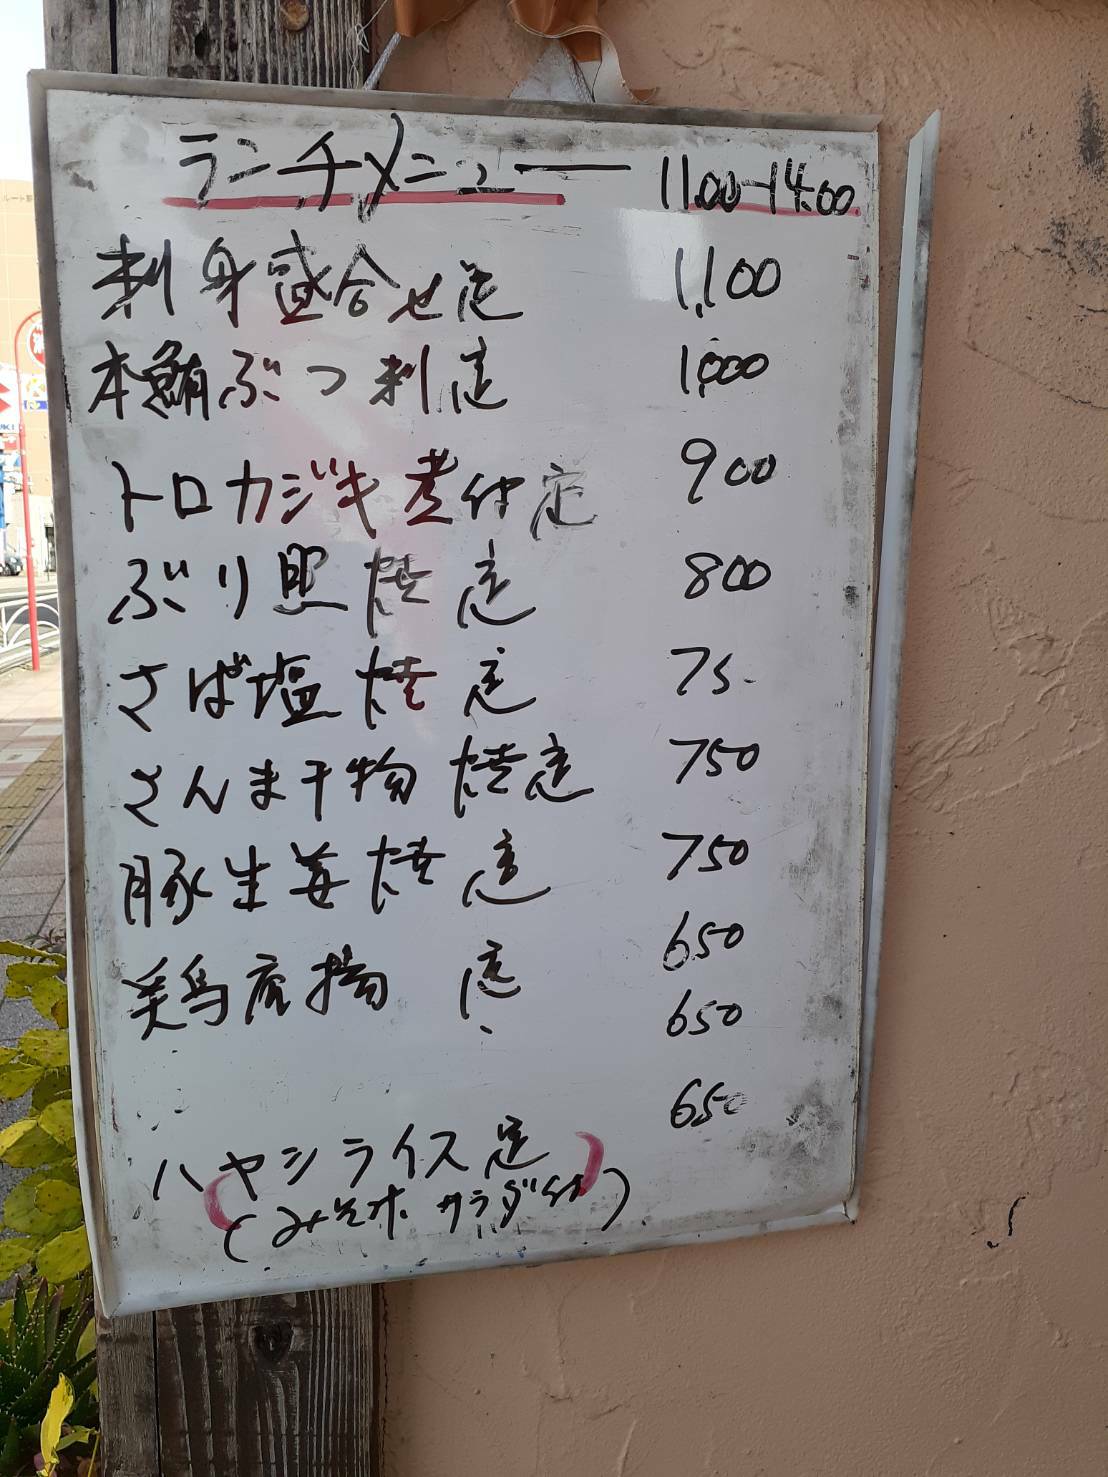 ランチメニュー 11:00-14:00
刺身盛合せ定 1,100
本鮪ぶつ刺定 1,000
トロカジキ煮付定 900
ぶり照焼定 800
さば塩焼定 75
さんま干物焼定 750
豚生姜焼定 750
鶏唐揚定 650
650
650
ハヤシライス定
(みそ汁 サラダ付)